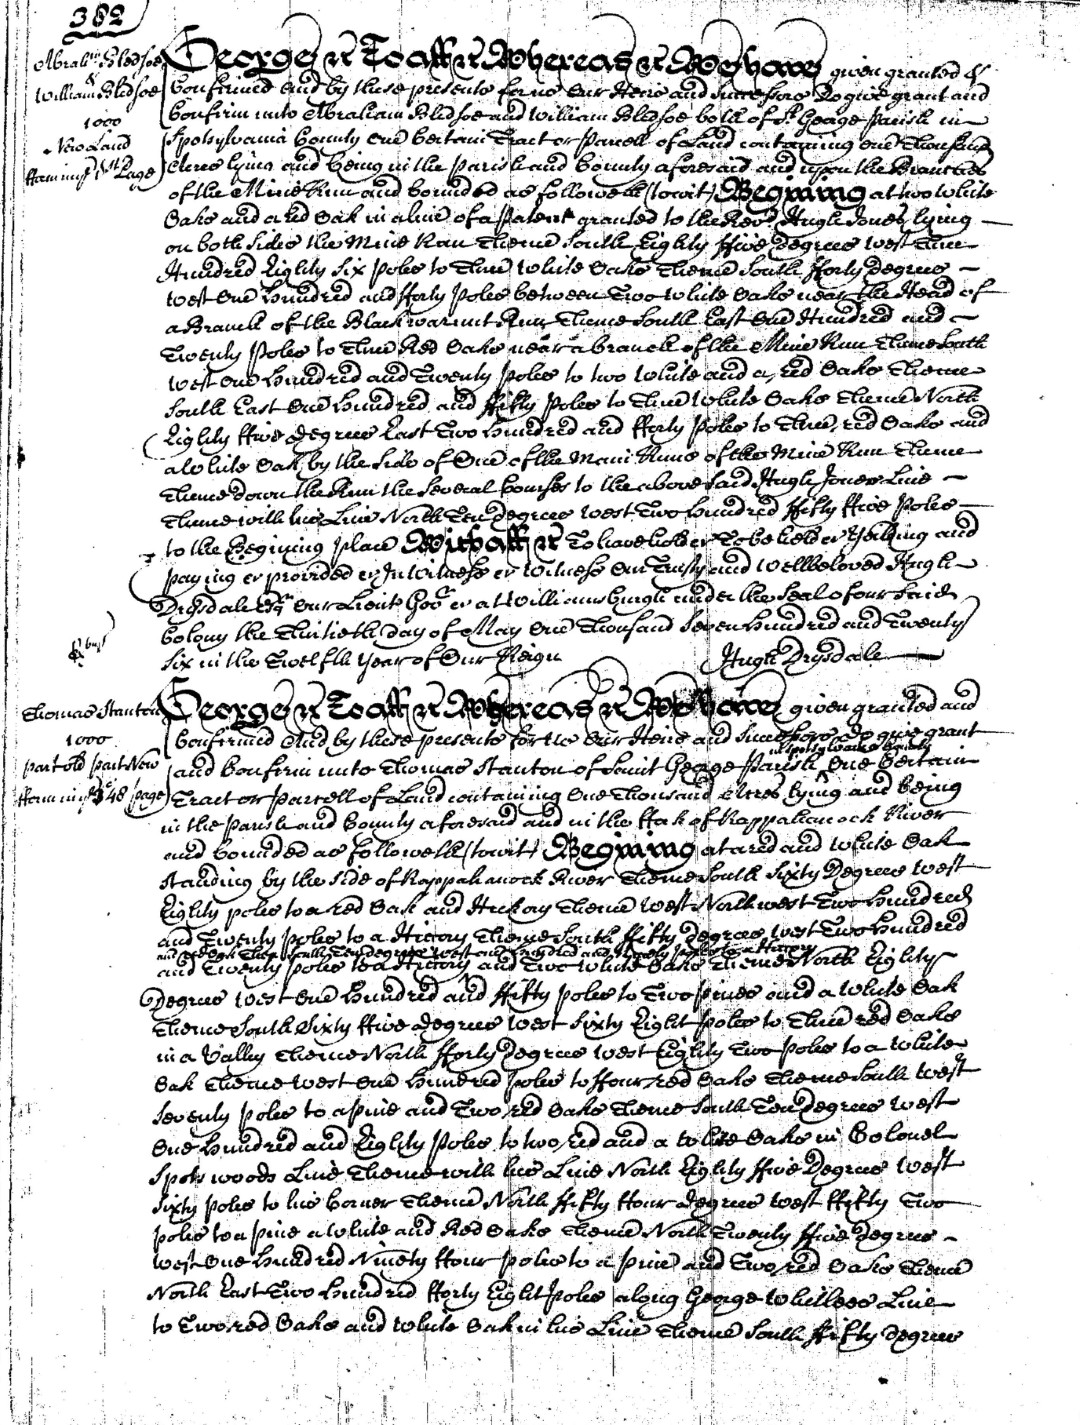 382
Abrah.m Bledsoe
&
William Bledsoe
1000
New Land
George &c To all &c Whereas &c We have given granted &
Confirmed and by these presents for us our Heirs and Successors Do give grant and
Confirm unto Abraham Bledsoe and William Bledsoe both of St. George Parish in
Spotsylvania County one Certain Tract or Parcell of Land containing one Thousand
Acres lying and being in the Parish and County aforesaid and upon the Branches
of the Mine Run and bounded as followeth (towit) Begining at two White
Oaks and a red Oak in a line of a Patent granted to the Revd. Hugh Jones lying
on both sides the Mine Run Thence South Eighty ffive Degrees West Three
Hundred Eighty Six poles to Three White Oaks Thence South fforty Degrees
West One Hundred and fforty Poles between Two White Oaks near the Head of
a Branch of the Black warnut Run Thence South East One Hundred and
Twenty Poles to Three Red Oaks near a branch of the Mine Run Thence South
West One Hundred and Twenty poles to two White and a red Oaks Thence
South East One Hundred and ffifty Poles to Three White Oaks Thence North
Eighty ffive Degrees East Two Hundred and fforty Poles to Three red Oaks and
a White Oak by the Side of One of the Main Runs of the Mine Run Thence
Thence down the Run the Several Courses to the above Said Hugh Jones Line
Thence with his Line North Ten degrees West Two Hundred ffifty ffive Poles
to the Begining place With all &c To have hold &c To be held &c Yeilding and
paying &c provided &c In Witness &c Witness our Trusty and Wellbeloved Hugh
Drysdale Esqr. our Lieut Govr. &c at Williamsburgh under the Seal of our Said
Colony the Thirtieth Day of May One Thousand Seven Hundred and Twenty
Six in the Twelfth Year of Our Reign
Hugh Drysdale
Thomas Stanton
1000
part old part New
George &c To all &c Whereas &c We have given granted and
Confirmed And by these presents for us Our Heirs and Successors Do give grant
in Spotsylvania County
and Confirm unto Thomas Stanton of Saint George Parish One Certain
Tract or Parcell of Land containing One Thousand Acres lying and being
in the Parish and County aforesaid and in the ffork of Rappahanock River
and bounded as followeth (towit) Begining at a red and White Oak
Standing by the Side of Rappahanock River Thence South Sixty Degrees West
Eighty poles to a red Oak and Hickory Thence West North west Two Hundred
and Twenty Poles to a Hickory Thence South ffifty degrees West Two Hundred
and red Oak Thence South Ten degrees West one hundred and Twenty Poles to a Hickory
and Twenty Poles to a Hickory and Two White Oaks Thence North Eighty
Degrees West One Hundred and ffifty poles to Two pines and a White Oak
Thence South Sixty ffive Degrees West Sixty Eight Poles to Three red Oaks
in a Valley Thence North fforty Degrees West Eighty Two Poles to a White
Oak Thence West One Hundred Poles to ffour red Oaks Thence South West
Seventy poles to a pine and Two red Oaks Thence South Ten degrees West
One Hundred and Eighty Poles to two red and a White Oaks in Colonel
Spotswoods Line Thence with his Line North Eighty ffive Degrees West
Sixty Poles to his Corner Thence North ffifty ffour Degrees West ffifty Two
poles to a pine a White and Red Oaks Thence North Twenty ffive degrees
West One Hundred Ninety ffour Poles to a pine and Two red Oaks Thence
North East Two Hundred fforty Eight Poles along George Whittles Line
to Two red Oaks and White Oak in his Line Thence South ffifty degrees